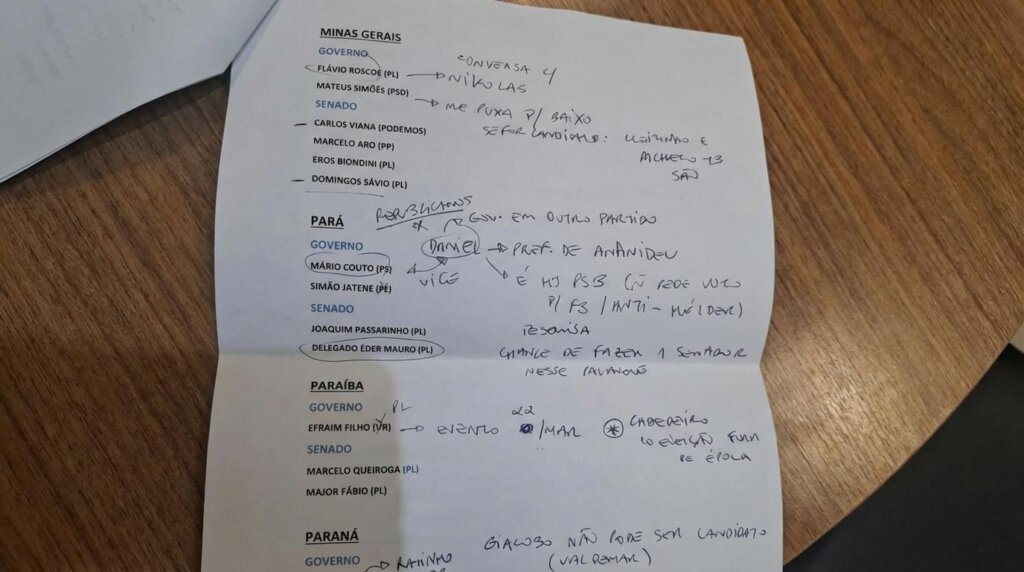 MINAS GERAIS
GOVERNO
FLÁVIO ROSCOE (PL) → CONVERSA C/ NIKOLAS
MATEUS SIMÕES (PSD) → ME PUXA P/ BAIXO
SENADO
SE FOR CANDIDATO: CLEITINHO E
CARLOS VIANA (PODEMOS)
PACHECO 13
MARCELO ARO (PP)
SÃO
EROS BIONDINI (PL)
DOMINGOS SÁVIO (PL)
REPUBLICANOS
PARÁ
GOV. EM OUTRO PARTIDO
GOVERNO
DANIEL → PREF. DE ANANIDEU
MÁRIO COUTO
VICE
É HJ PSB (Ñ PEDE VOTO
SIMÃO JATENE
P/ FB / ANTI-HÉLDER)
SENADO
JOAQUIM PASSARINHO (PL)
PESQUISA
DELEGADO ÉDER MAURO (PL)
CHANCE DE FAZER 1 SENADOR
NESSE PALANQUE
PARAÍBA
GOVERNO
PL
EFRAIM FILHO → EVENTO 22/MAR
* CABEDELO
ELEIÇÃO FORA
DE ÉPOCA
SENADO
MARCELO QUEIROGA (PL)
MAJOR FÁBIO (PL)
PARANÁ
GIACOBO NÃO PODE SER CANDIDATO
(VALDEMAR)
GOVERNO → RATINHO